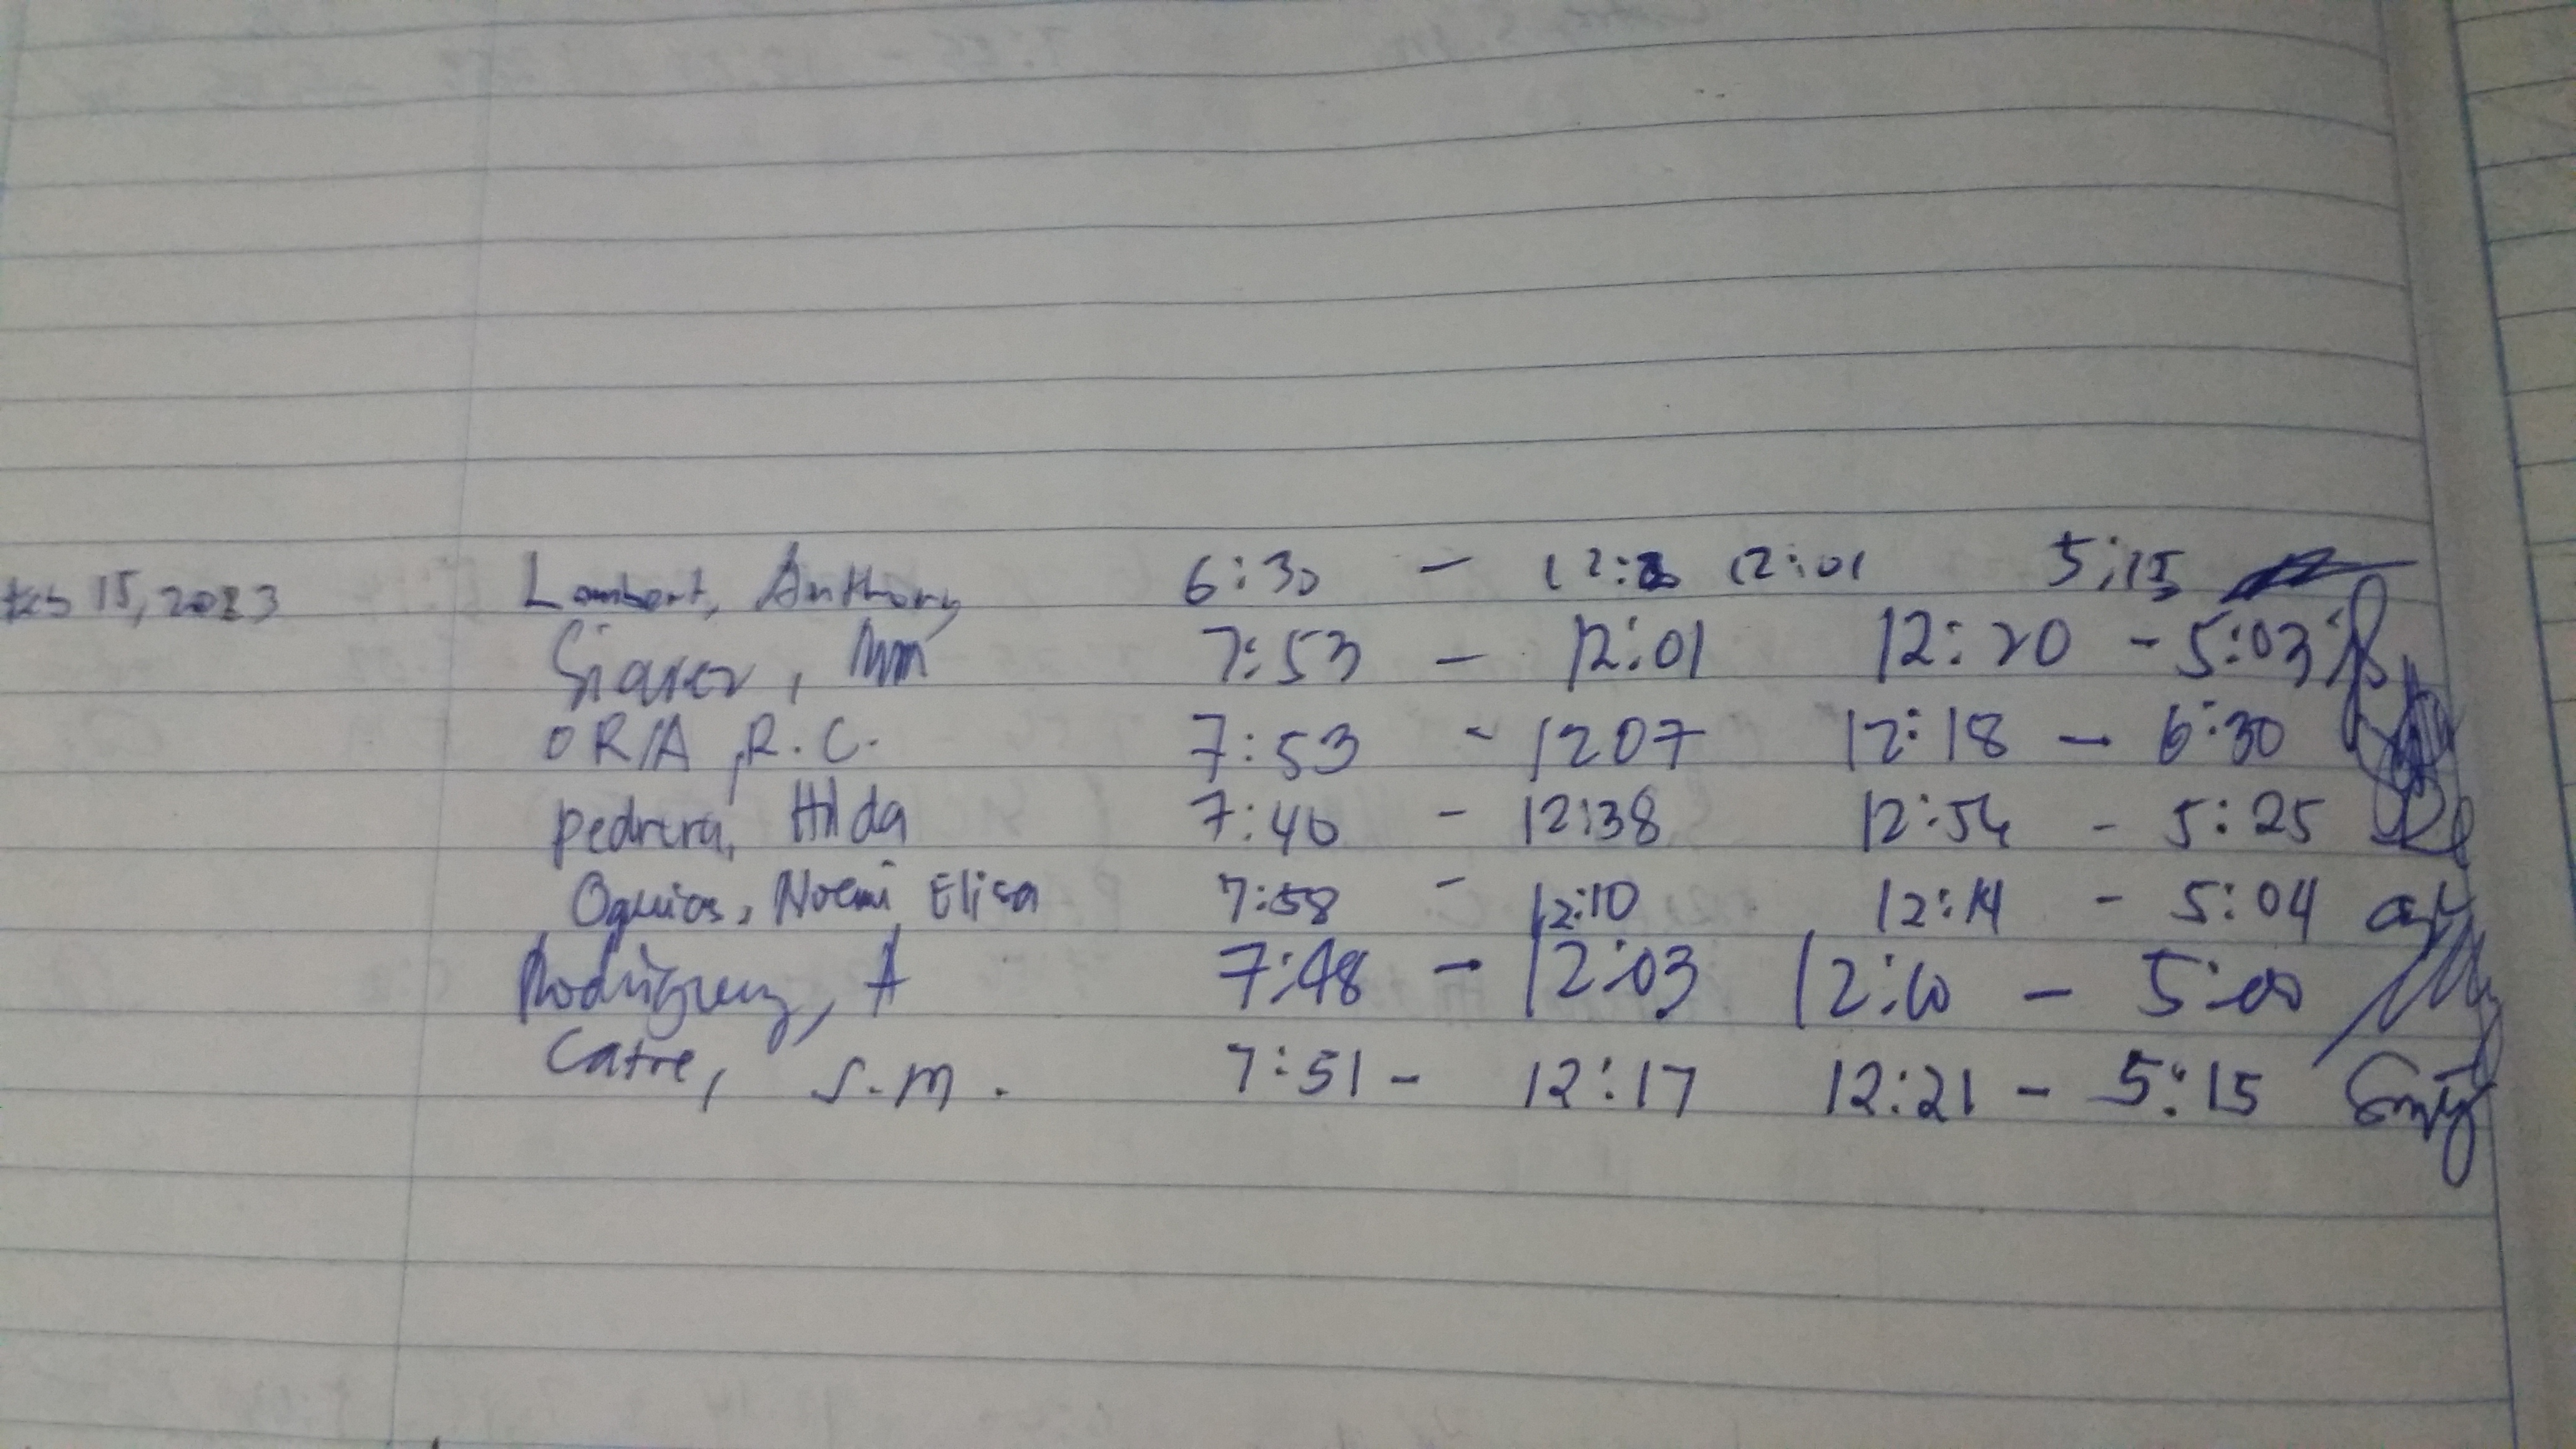 Feb 15, 2023 Lambert, Anthony 6:30 - 12:01 5:15
Siarez, MM 7:53 - 12:01 12:20 - 5:03
ORIA, R.C. 7:53 - 1207 12:18 - 6:30
Pedrera, Hilda 7:40 - 12:38 12:54 - 5:25
Oquias, Noemi Elisa 7:58 - 12:10 12:14 - 5:04
Rodriguez, A 7:48 - 12:03 12:10 - 5:00
Catre, S.M. 7:51 - 12:17 12:21 - 5:15